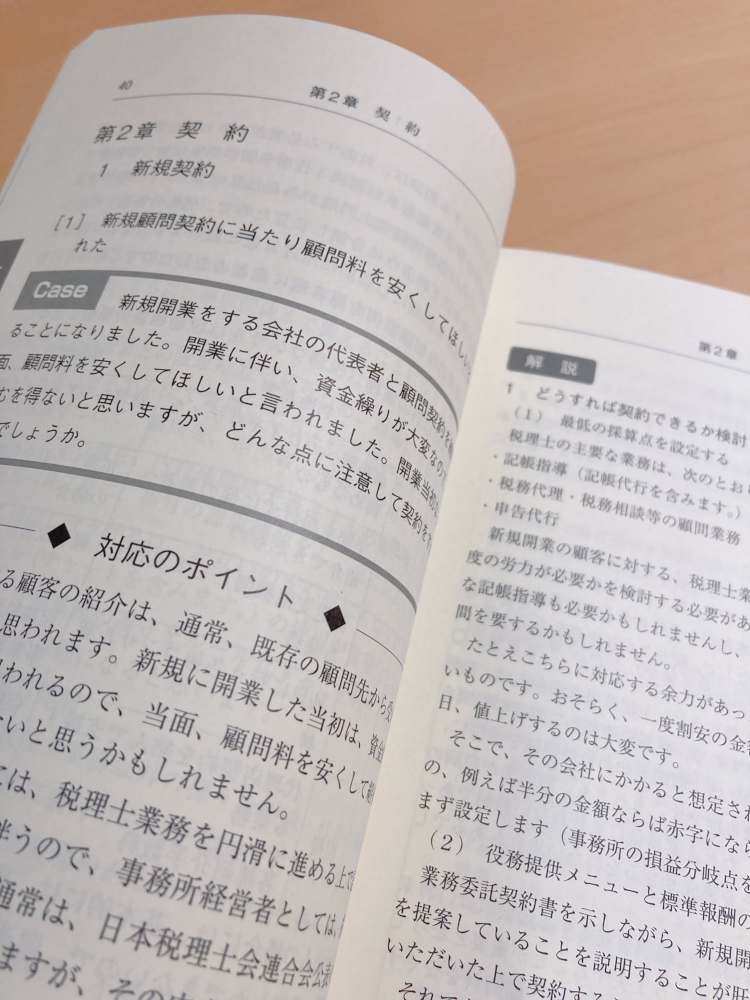 40
第2章 契約
第2章 契約
1 新規契約
[1] 新規顧問契約に当たり顧問料を安くしてほしいと
れた
Case
新規開業をする会社の代表者と顧問契約を
ることになりました。開業に伴い、資金繰りが大変なので
面、顧問料を安くしてほしいと言われました。開業当初
むを得ないと思いますが、どんな点に注意して契約を
でしょうか。
◆ 対応のポイント ◆
る顧客の紹介は、通常、既存の顧問先から受
思われます。新規に開業した当初は、資金
われるので、当面、顧問料を安くして
いと思うかもしれません。
ては、税理士業務を円滑に進める上で
伴うので、事務所経営者としては、
通常は、日本税理士会連合会公表
ますが、その
第2章
解説
1 どうすれば契約できるか検討
(1) 最低の採算点を設定する
税理士の主要な業務は、次のとおり
・記帳指導(記帳代行を含みます。)
・税務代理・税務相談等の顧問業務
・申告代行
新規開業の顧客に対する、税理士業
度の労力が必要かを検討する必要があ
な記帳指導も必要かもしれませんし、
間を要するかもしれません。
たとえこちらに対応する余力があっ
いものです。おそらく、一度割安の金
日、値上げするのは大変です。
そこで、その会社にかかると想定され
の、例えば半分の金額ならば赤字になら
まず設定します(事務所の損益分岐点を
(2) 役務提供メニューと標準報酬の
業務委託契約書を示しながら、新規開
を提案していることを説明することが肝
いただいた上で契約する